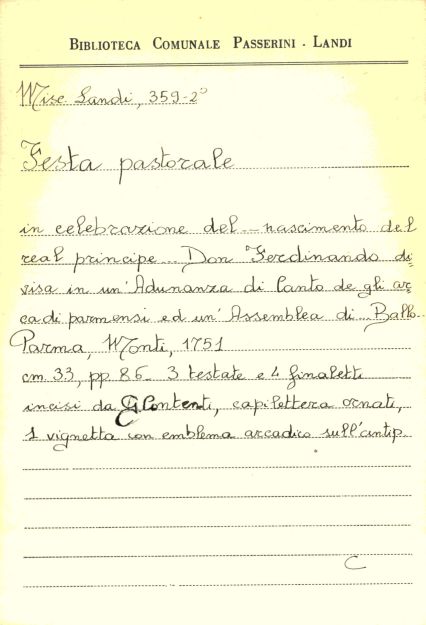 BIBLIOTECA COMUNALE PASSERINI - LANDI
Misc. Landi, 359-2°
Festa pastorale
in celebrazione del - nascimento del
real principe... Don Ferdinando di-
visa in un'Adunanza di Canto de gli ar-
cadi parmensi ed un'Assemblea di Ballo
Parma, Monti, 1751
cm 33, pp 86 - 3 testate e 4 finaletti
incisi da G. Contenti, capilettera ornati,
1 vignetta con emblema arcadico sull'antip.
C